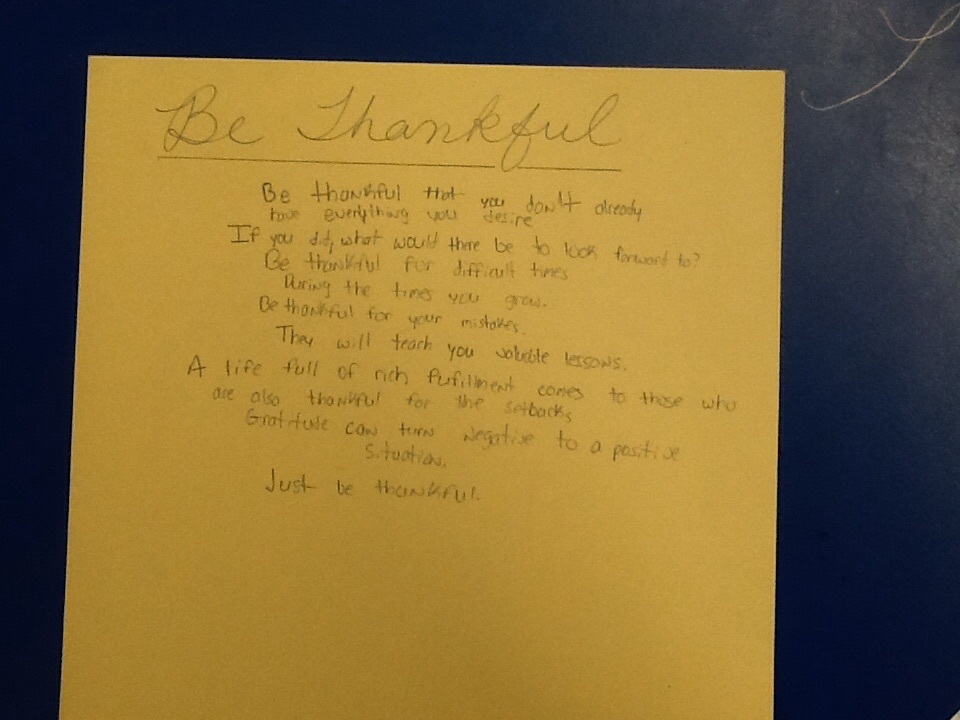 Be Thankful
Be thankful that you don't already
have everything you desire
If you did, what would there be to look forward to?
Be thankful for difficult times
During the times you grow.
Be thankful for your mistakes.
They will teach you valuable lessons.
A life full of rich fufillment comes to those who
are also thankful for the setbacks
Gratitude can turn negative to a positive
situation.
Just be thankful.